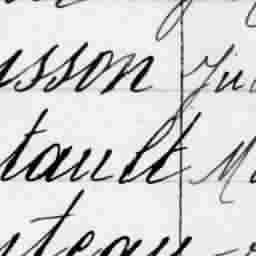 usson Ju
tault Ma
uteau